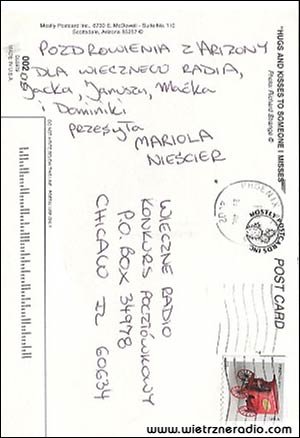 Mostly Postcard Inc. 6730 E. McDowell - Suite No. 110
Scottsdale, Arizona 85257 ©
POZDROWIENIA Z ARIZONY
DLA WIECZNEGO RADIA,
Jacka, Janusza, Maćka
i Dominiki
PRZESYŁA
MARIOLA
NIEŚCIER
"HUGS AND KISSES TO SOMEONE I MISSES"
Photo: Richard Strange ©
002
MADE IN U.S.A.
PHOENIX
POSTCARDS INC
POST CARD
WIECZNE RADIO
KONKURS POCZTÓWKOWY
P.O. BOX 34978
CHICAGO IL 60634
www.wietrzneradio.com